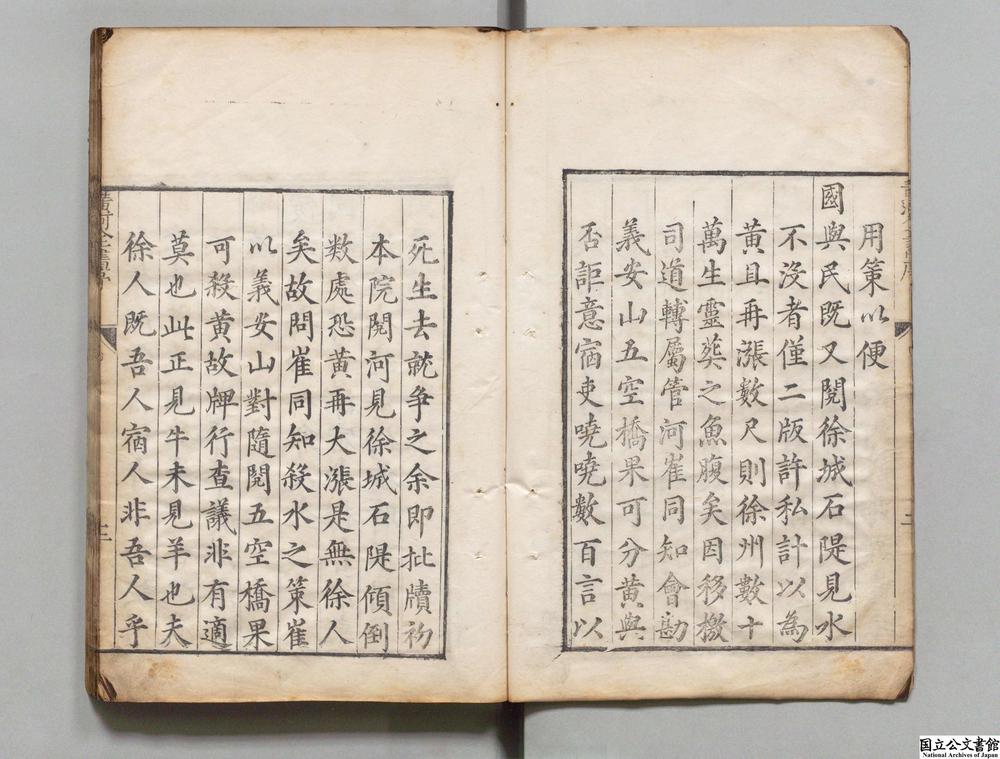 用策以便
國與民既又閱徐城石隄見水
不沒者僅二版許私計以為
黃且再漲數尺則徐州數十
萬生靈葬之魚腹矣因移檄
司道轉屬管河崔同知會勘
義安山五空橋果可分黃與
否詎意宿吏嘵嘵數百言以
死生去就争之余即批牘初
本院閱河見徐城石隄傾倒
数處恐黃再大漲是無徐人
矣故問崔同知殺水之策崔
以義安山對隨閱五空橋果
可殺黃故牌行查議非有適
莫也此正見牛未見羊也夫
徐人既吾人宿人非吾人乎
国立公文書館
National Archives of Japan